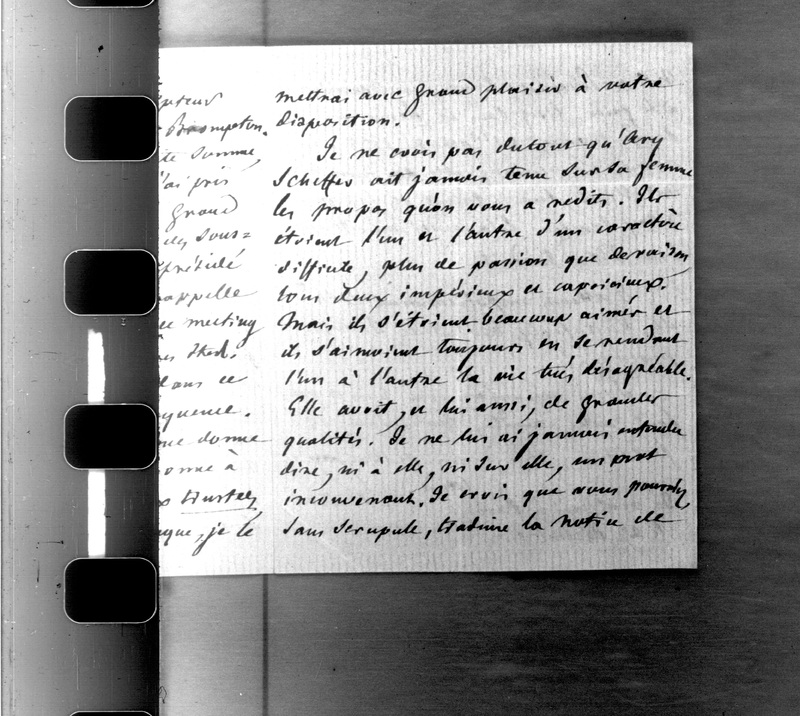 mettrai avec grand plaisir à votre
disposition.
Je ne crois pas dutout qu'Ary
Scheffer ait jamais tenu sur sa femme
les propos qu'on vous a redits. Ils
étoient l'un et l'autre d'un caractère
difficile, plus de passion que de raison
tous deux impérieux et capricieux.
Mais ils s'étoient beaucoup aimés et
ils s'aimoient toujours en se rendant
l'un à l'autre la vie très désagréable.
Elle avoit, et lui aussi, de grandes
qualités. Je ne lui ai jamais entendu
dire, ni à elle, ni sur elle, un mot
inconvenant. Je crois que vous pouvez,
sans scrupule, traduire la notice de
Brompton.
te somme,
j'ai pris
grand
des sous=
présidé
rappelle
ce meeting
dans ce
quence.
me donne
donne à
que, je le